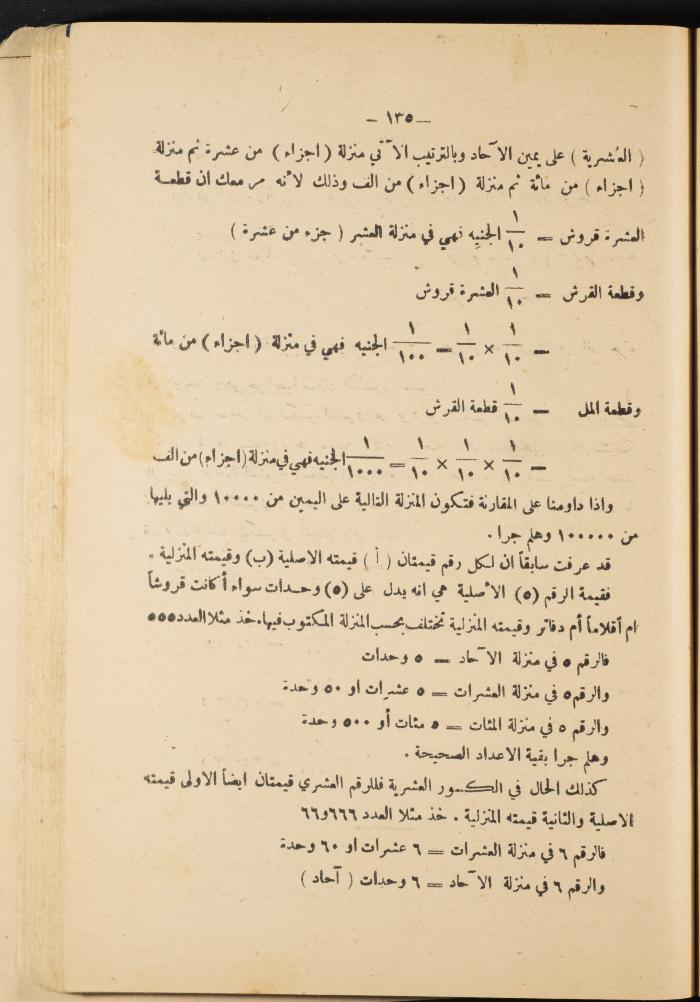 — ١٣٥ —
( العشرية ) على يمين الآحاد وبالترتيب الآتي منزلة ( اجزاء ) من عشرة ثم منزلة
( اجزاء ) من مائة ثم منزلة ( اجزاء ) من الف وذلك لأنه مر معك ان قطعة
العشرة قروش = ١/١٠ الجنيه فهي في منزلة العشر ( جزء من عشرة )
وقطعة القرش = ١/١٠ العشرة قروش
= ١/١٠ × ١/١٠ = ١/١٠٠ الجنيه فهي في منزلة ( اجزاء ) من مائة
وقطعة المل = ١/١٠ قطعة القرش
= ١/١٠ × ١/١٠ × ١/١٠ = ١/١٠٠٠ الجنيه فهي في منزلة (اجزاء) من الف
واذا داومنا على المقارنة فتكون المنزلة التالية على اليمين من ١٠٠٠٠ والتي يليها
من ١٠٠٠٠٠ وهلم جرا .
قد عرفت سابقاً ان لكل رقم قيمتان ( أ ) قيمته الاصلية (ب) وقيمته المنزلية .
فقيمة الرقم (٥) الأصلية هي انه يدل على (٥) وحدات سواء أكانت قروشاً
ام أقلاماً أم دفاتر وقيمته المنزلية تختلف بحسب المنزلة المكتوب فيها. خذ مثلا العدد ٥٥٥
فالرقم ٥ في منزلة الآحاد = ٥ وحدات
والرقم ٥ في منزلة العشرات = ٥ عشرات او ٥٠ وحدة
والرقم ٥ في منزلة المئات = ٥ مئات أو ٥٠٠ وحدة
وهلم جرا بقية الاعداد الصحيحة .
كذلك الحال في الكسور العشرية فللرقم العشري قيمتان ايضاً الاولى قيمته
الاصلية والثانية قيمته المنزلية . خذ مثلا العدد ٦٦٦و٦٦
فالرقم ٦ في منزلة العشرات = ٦ عشرات او ٦٠ وحدة
والرقم ٦ في منزلة الآحاد = ٦ وحدات ( آحاد )